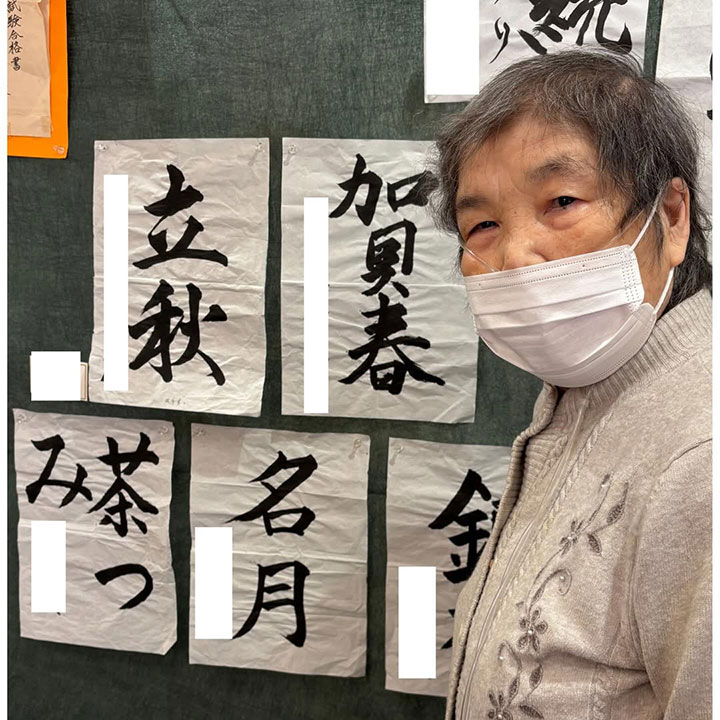 試験合格書
り
立秋
賀春
茶つ
み
名月